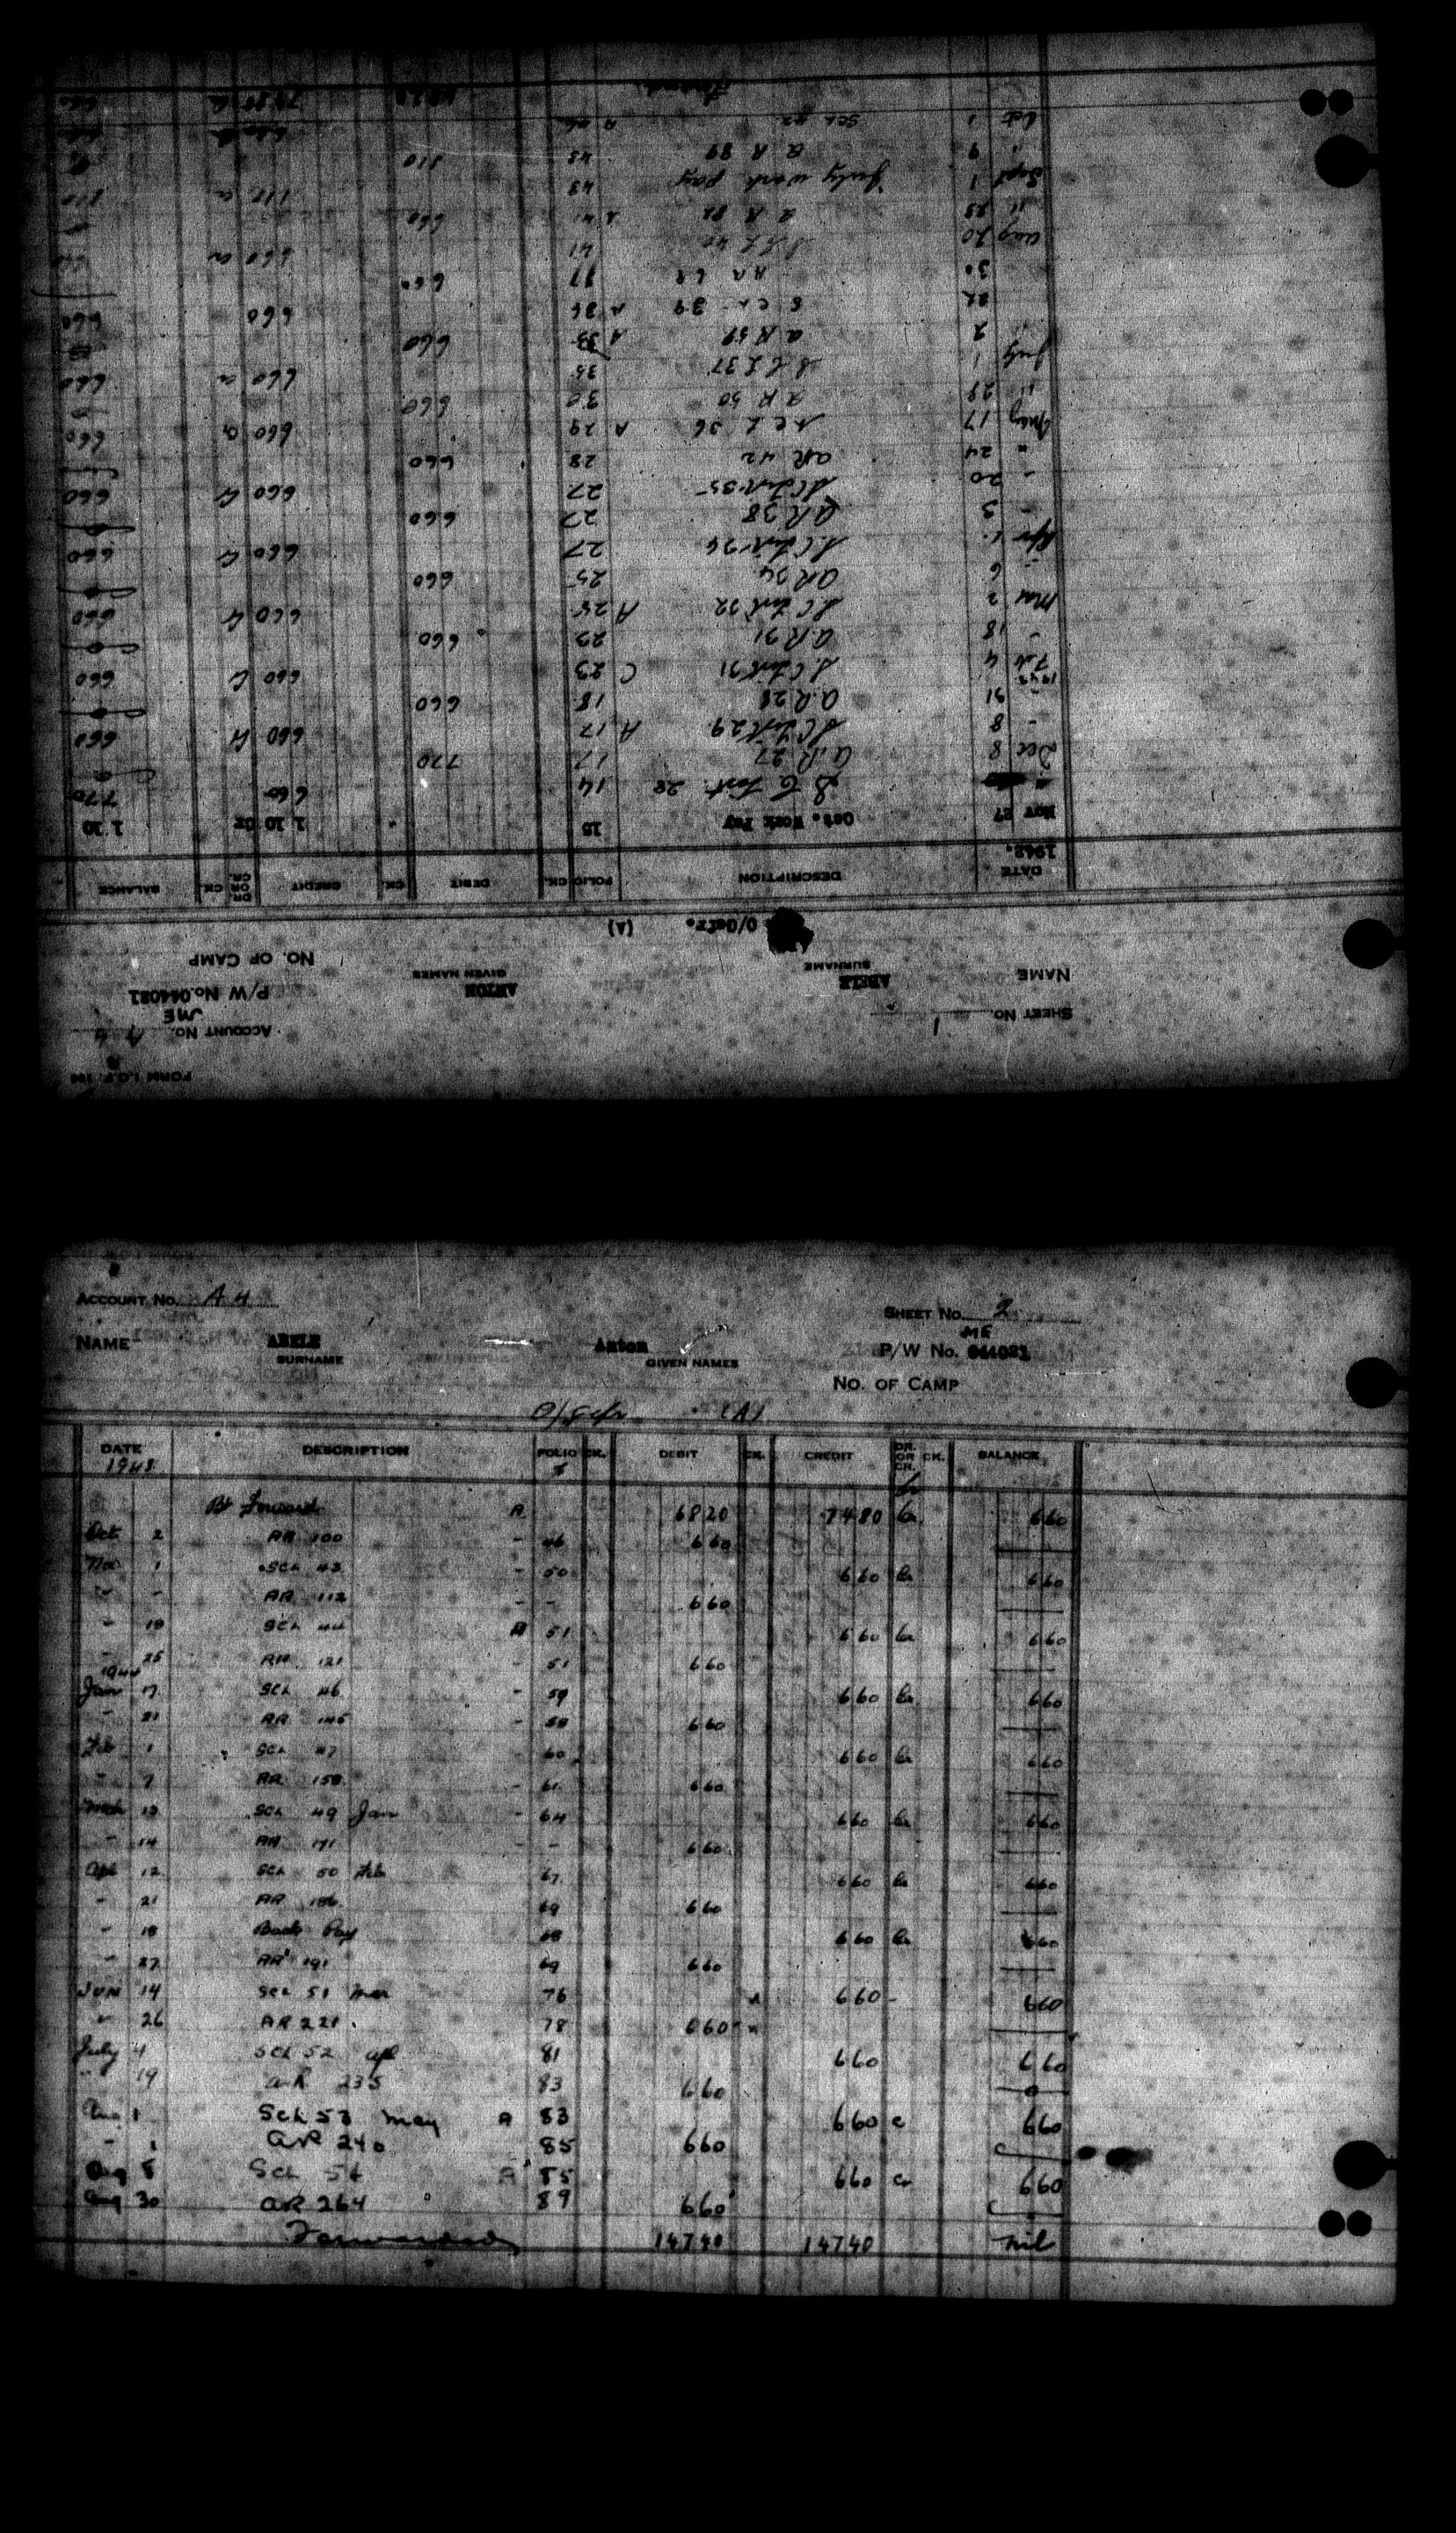 FORM I.O.P. 1M
ACCOUNT No. A 4
SHEET NO. 1
ME
P/W No. 044021
NAME ABELE ANTON
SURNAME GIVEN NAMES
NO. OF CAMP
O/Gefr. (A)
DATE DESCRIPTION FOLIO CK. DEBIT CK. CREDIT DR. OR CR. CK. BALANCE
1942.
Nov 27 Oct. Work Pay 15 1 10 Cr 1.10
14 660 770
Dec 8 A.R. 27 17 770
- 8 29 A 17 660 660
- 31 A.R 28 18 660
1943
Feb 4 31 C 23 660 C 660
- 18 A.R 31 23 660
Mar 2 32 A 25 660 660
- 6 AR 34 25 660
Apr 34 27 660 660
- 3 AR 38 27 660
- 20 35 27 660 660
" 24 AR 42 28 660
May 17 36 A 29 660 a 660
" 28 A R 50 30 660
July 1 37 35 660 a 660
2 A R 59 A 35 660
22 S CL 39 A 36 660 660
30 A R 68 37 660
Aug 20 41 660 a
" 25 A R 82 41 660
Sept 1 July work pay 43 110 a 110
" 9 A R 89 43 110
Oct 1 SCL A 660
7480
ACCOUNT NO. A 4
SHEET NO. 2
NAME ABELE Anton
ME
SURNAME GIVEN NAMES P/W No. 044021
NO. OF CAMP
O/Gefr (A)
DATE DESCRIPTION FOLIO CK. DEBIT CK. CREDIT DR. OR CR. CK. BALANCE
1943
Bt Forward A 6820 7480 Cr 660
Oct 2 AR 100 - 46 660
Nov 1 SCL 43 - 50 660 Cr 660
" - AR 112 - - 660
- 19 SCL 44 A 51 660 Cr 660
- 25 AR 121 - 51 660
1944
Jan 17 SCL 46 - 59 660 Cr 660
- 21 AR 145 - 58 660
Feb 1 SCL 47 60 660 Cr 660
- 7 AR 158 - 61 660
Mch 13 SCL 49 Jan - 64 660 Cr 660
- 14 AR 171 - - 660
Apl 12 SCL 50 Feb 67 660 Cr 660
- 21 AR 186 69 660
- 18 Back Pay 68 660 Cr 660
- 27 AR 191 69 660
JUN 14 SCL 51 Mar 76 660 - 660
" 26 AR 221 78 660
July 4 SCL 52 apl 81 660 660
19 AR 235 83 660
Aug 1 SCL 53 May A 83 660 c 660
- 1 AR 240 85 660
Aug 8 SCL 54 A 85 660 Cr 660
Aug 30 AR 264 89 660
Forwarded 14740 14740 nil